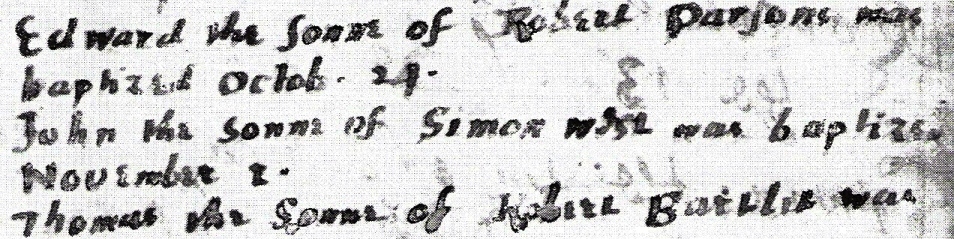 Edward the sonne of Robert Parsons was
baptized Octob. 29.
John the sonne of Simon was baptize
November 1.
Thomas the Sonne of Robert was